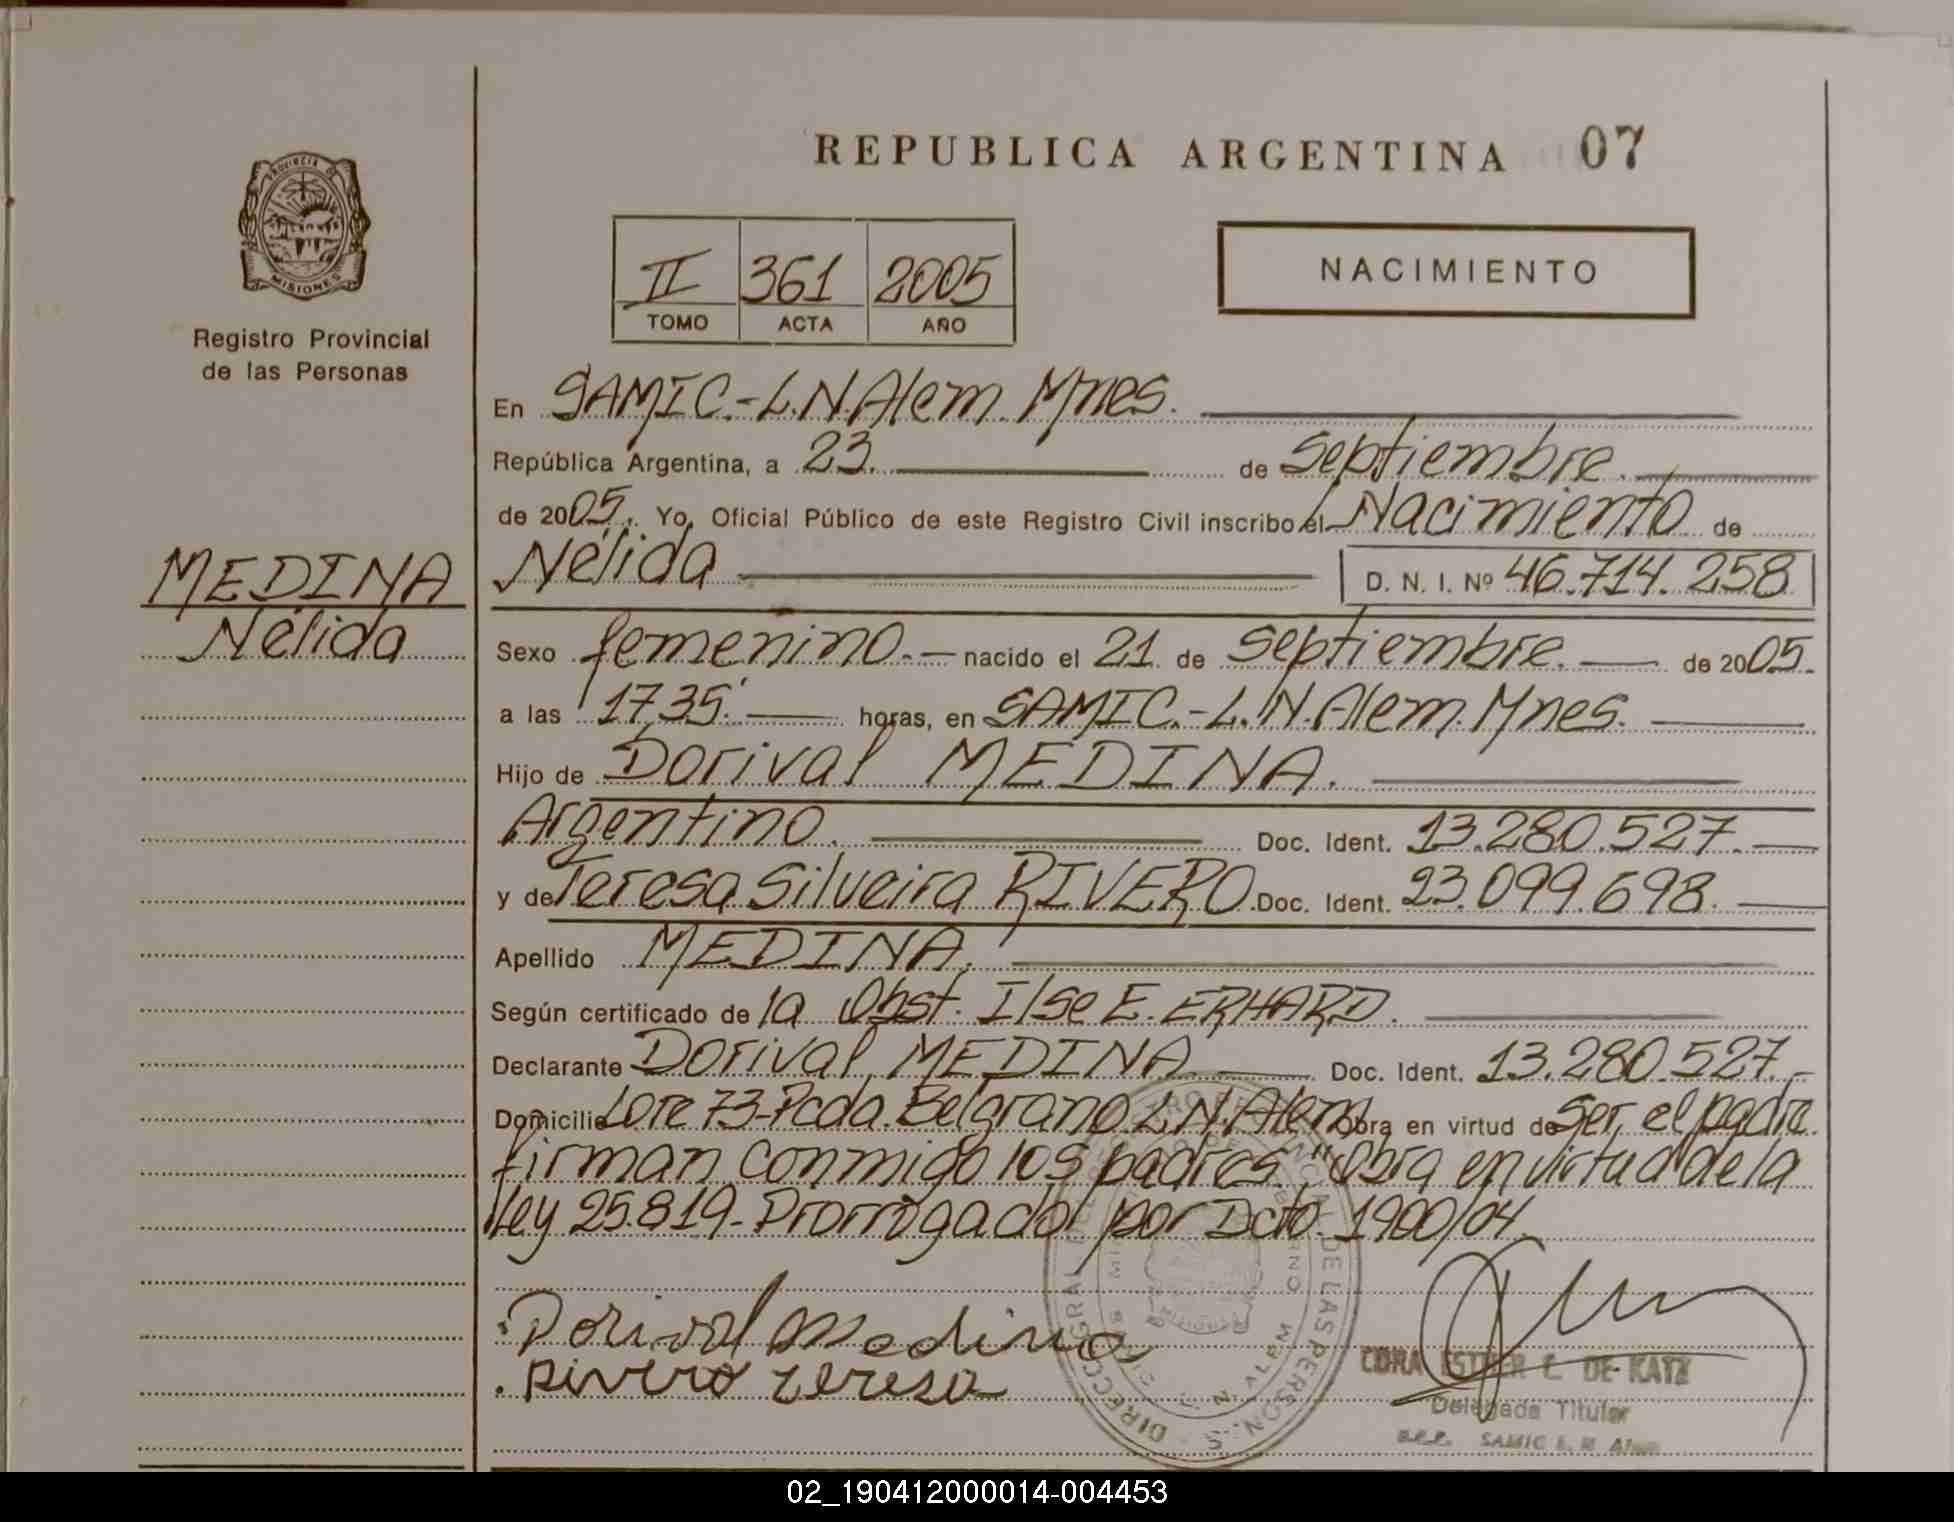 REPUBLICA ARGENTINA 07
PROVINCIA DE
MISIONES
Registro Provincial
de las Personas
II 361 2005
TOMO ACTA AÑO
NACIMIENTO
En SAMIC.-L.N.Alem. Mnes.
República Argentina, a 23. de septiembre.
de 2005. Yo, Oficial Público de este Registro Civil inscribo el Nacimiento de
MEDINA
Nélida
Nélida D. N. I. Nº 46.714.258
Sexo femenino.- nacido el 21 de septiembre. de 2005.
a las 17,35' horas, en SAMIC.-L.N.Alem. Mnes.
Hijo de Dorival MEDINA.
Argentino. Doc. Ident. 13.280.527.
y de Teresa Silveira RIVERO. Doc. Ident. 23.099.698.
Apellido MEDINA.
Según certificado de la Obst. Ilse E. ERHARD.
Declarante Dorival MEDINA Doc. Ident. 13.280.527.-
Domicilio Lote 73-Pcda. Belgrano L.N.Alem Obra en virtud de Ser, el padre.
firman conmigo los padres "Obra en virtud de la
Ley 25.819- Prorrogado por Dcto. 1900/04.
Dorival Medina
Rivero Teresa
CORA ESTHER E. DE KATZ
Delegada Titular
SAMIC L. N. Alem
02_190412000014-004453